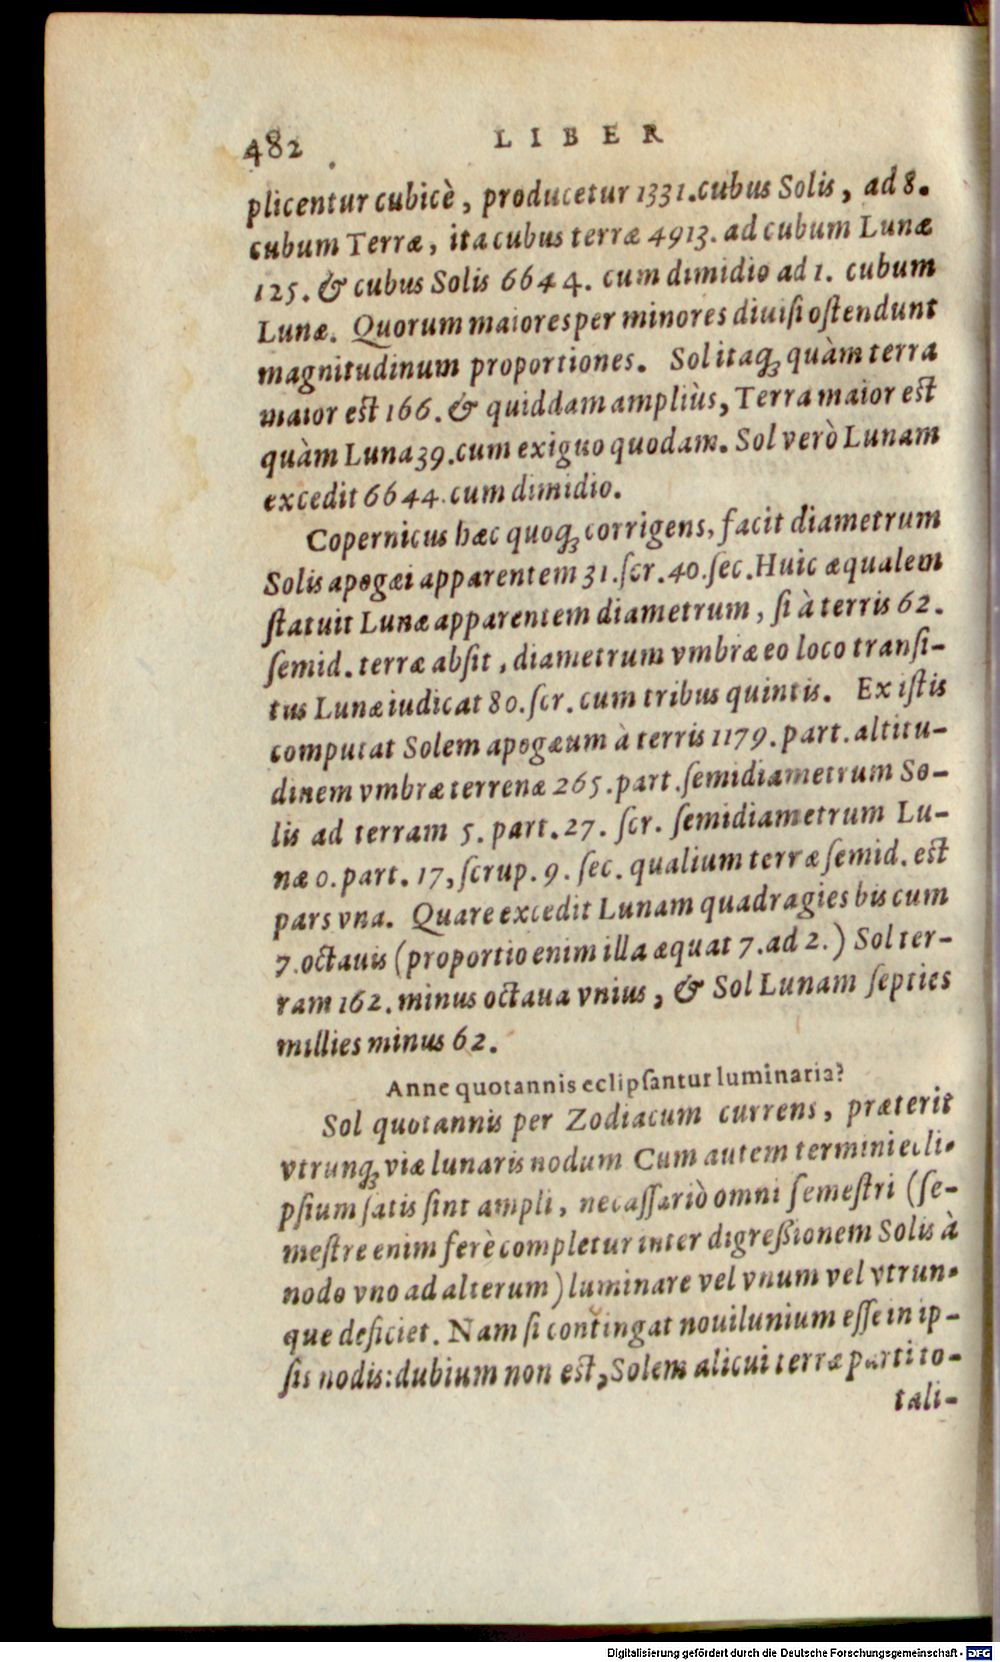 482 LIBER
plicentur cubicè, producetur 1331. cubus Solis, ad 8.
cubum Terræ, ita cubus terræ 4913. ad cubum Lunæ
125. & cubus Solis 6644. cum dimidio ad 1. cubum
Lunæ. Quorum maiores per minores diuisi ostendunt
magnitudinum proportiones. Sol itaq́ʒ quàm terra
maior est 166. & quiddam ampliùs, Terra maior est
quàm Luna 39. cum exiguo quodam. Sol verò Lunam
excedit 6644. cum dimidio.
Copernicus hæc quoq́ʒ corrigens, facit diametrum
Solis apogæi apparentem 31. ſcr. 40. ſec. Huic æqualem
ſtatuit Lunæ apparentem diametrum, ſi à terris 62.
ſemid. terræ abſit, diametrum vmbræ eo loco tranſi-
tus Lunæ iudicat 80. ſcr. cum tribus quintis. Ex iſtis
computat Solem apogæum à terris 1179. part. altitu-
dinem vmbræ terrenæ 265. part. ſemidiametrum So-
lis ad terram 5. part. 27. ſcr. ſemidiametrum Lu-
næ 0. part. 17, ſcrup. 9. ſec. qualium terræ ſemid. eſt
pars vna. Quare excedit Lunam quadragies bis cum
7. octauis (proportio enim illa æquat 7. ad 2.) Sol ter-
ram 162. minus octaua vnius, & Sol Lunam ſepties
millies minus 62.
Anne quotannis eclipſantur luminaria?
Sol quotannis per Zodiacum currens, præterit
vtrunq́ʒ viæ lunaris nodum Cum autem termini ecli-
pſium ſatis ſint ampli, necaſſariò omni ſemeſtri (ſe-
meſtre enim ferè completur inter digreßionem Solis à
nodo vno ad alterum) luminare vel vnum vel vtrun-
que deficiet. Nam ſi contingat nouilunium eſſe in ip-
ſis nodis: dubium non eſt, Solem alicui terræ parti to-
tali-
Digitalisierung gefördert durch die Deutsche Forschungsgemeinschaft - DFG